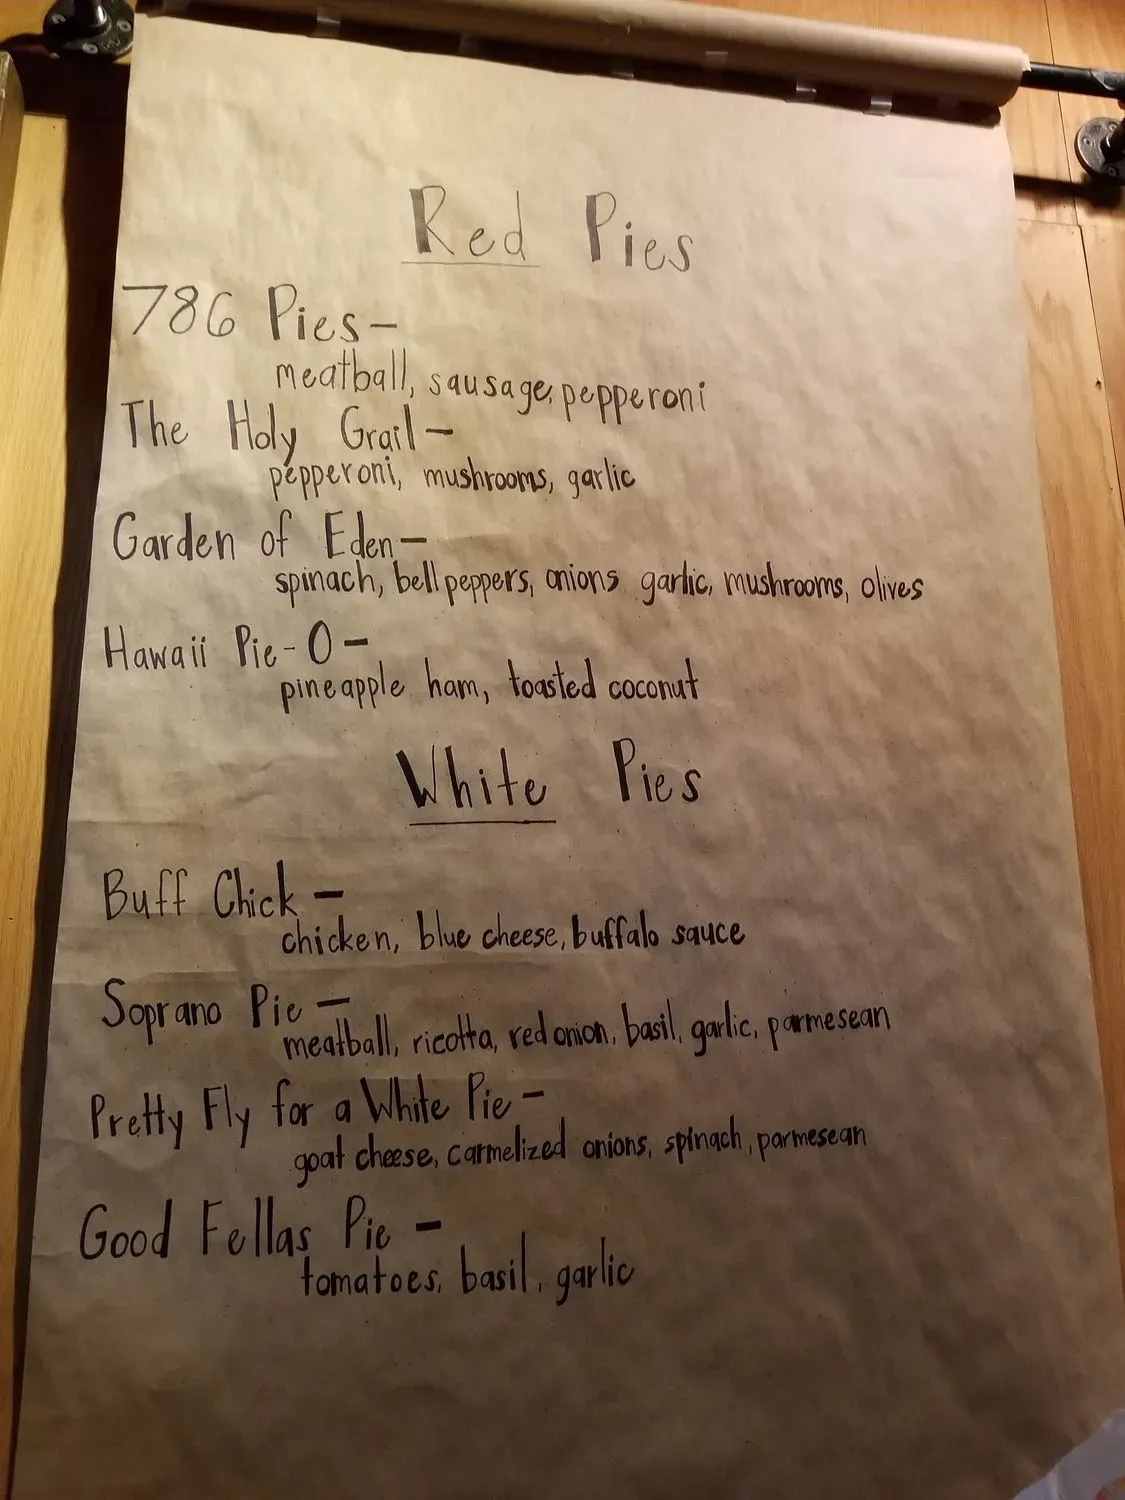 Red Pies
786 Pies-
meatball, sausage, pepperoni
The Holy Grail-
pepperoni, mushrooms, garlic
Garden of Eden-
spinach, bell peppers, onions garlic, mushrooms, olives
Hawaii Pie-O-
pineapple ham, toasted coconut
White Pies
Buff Chick-
chicken, blue cheese, buffalo sauce
Soprano Pie-
meatball, ricotta, red onion, basil, garlic, parmesean
Pretty Fly for a White Pie-
goat cheese, carmelized onions, spinach, parmesean
Good Fellas Pie-
tomatoes, basil, garlic